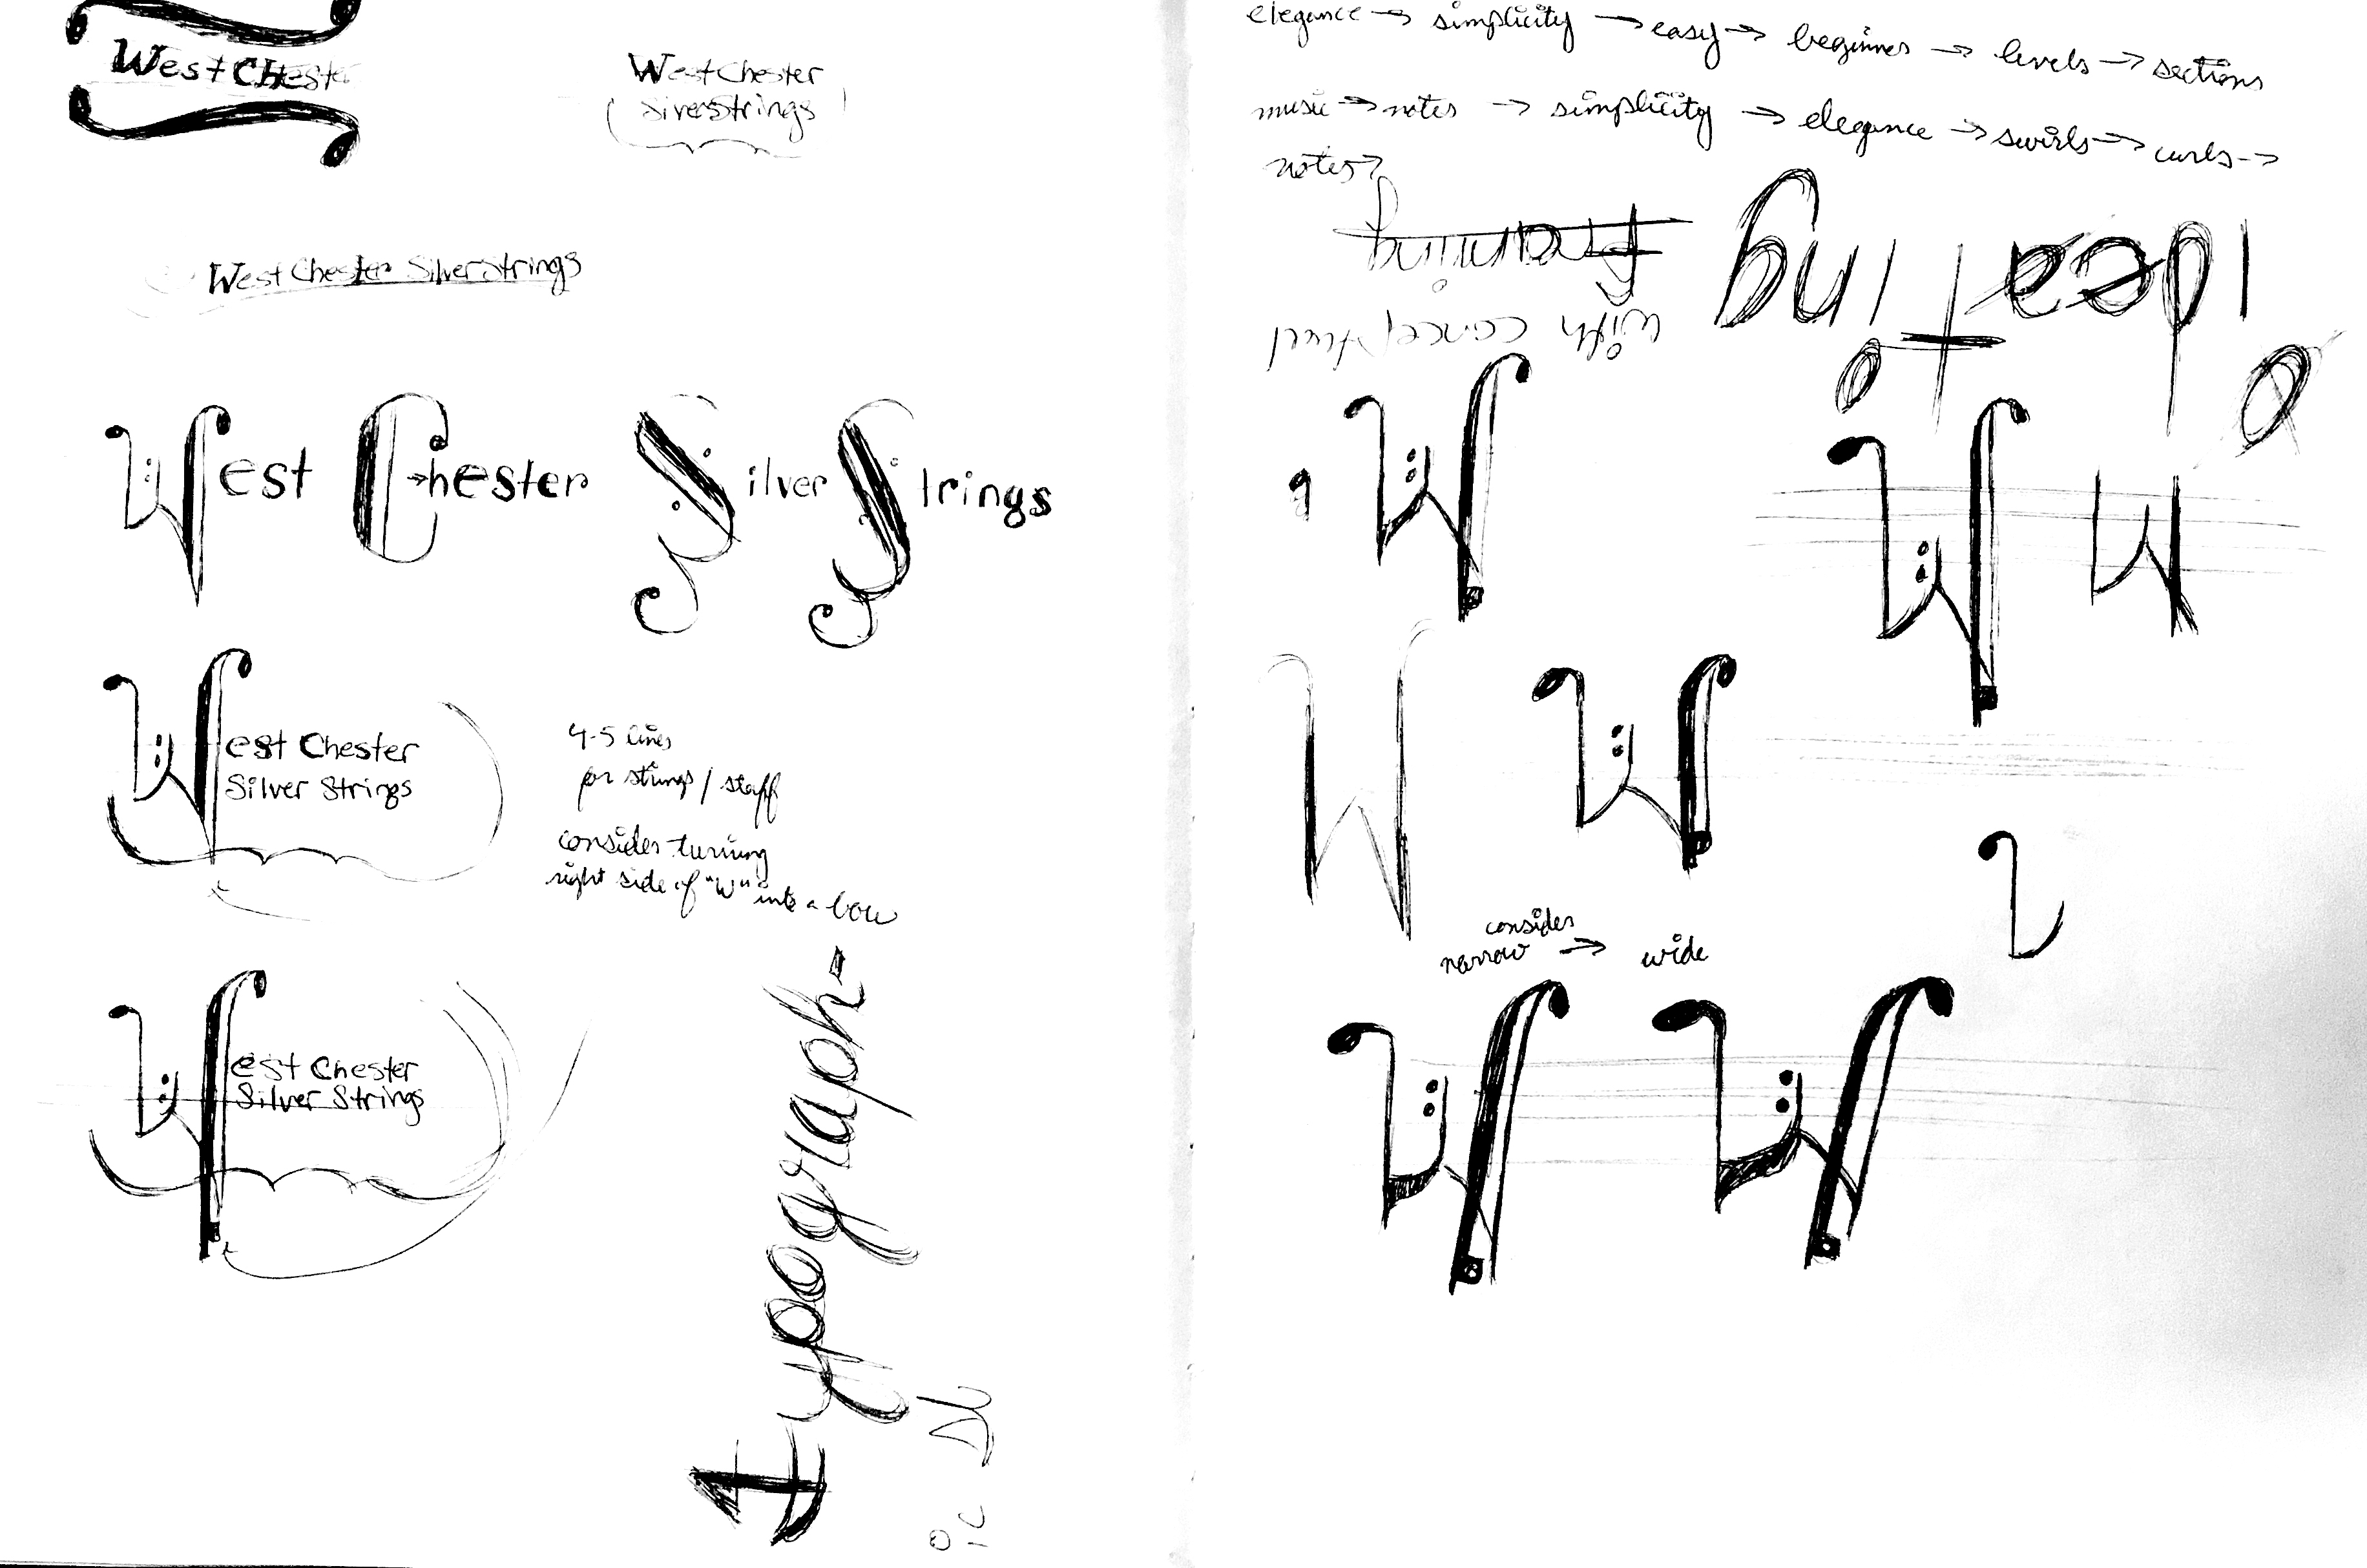 West Chester
West Chester
Silver Strings
West Chester Silver Strings
West Chester Silver Strings
West Chester
Silver Strings
4-5 lines
for strings / staff
consider turning
right side of "W" into a bow
West Chester
Silver Strings
typograph-
ic
elegance → simplicity → easy → beginner → levels → sections
music → notes → simplicity → elegance → swirls → curls →
notes?
Ideating
with
W
W
W
W
W
consider
narrow → wide
W
W